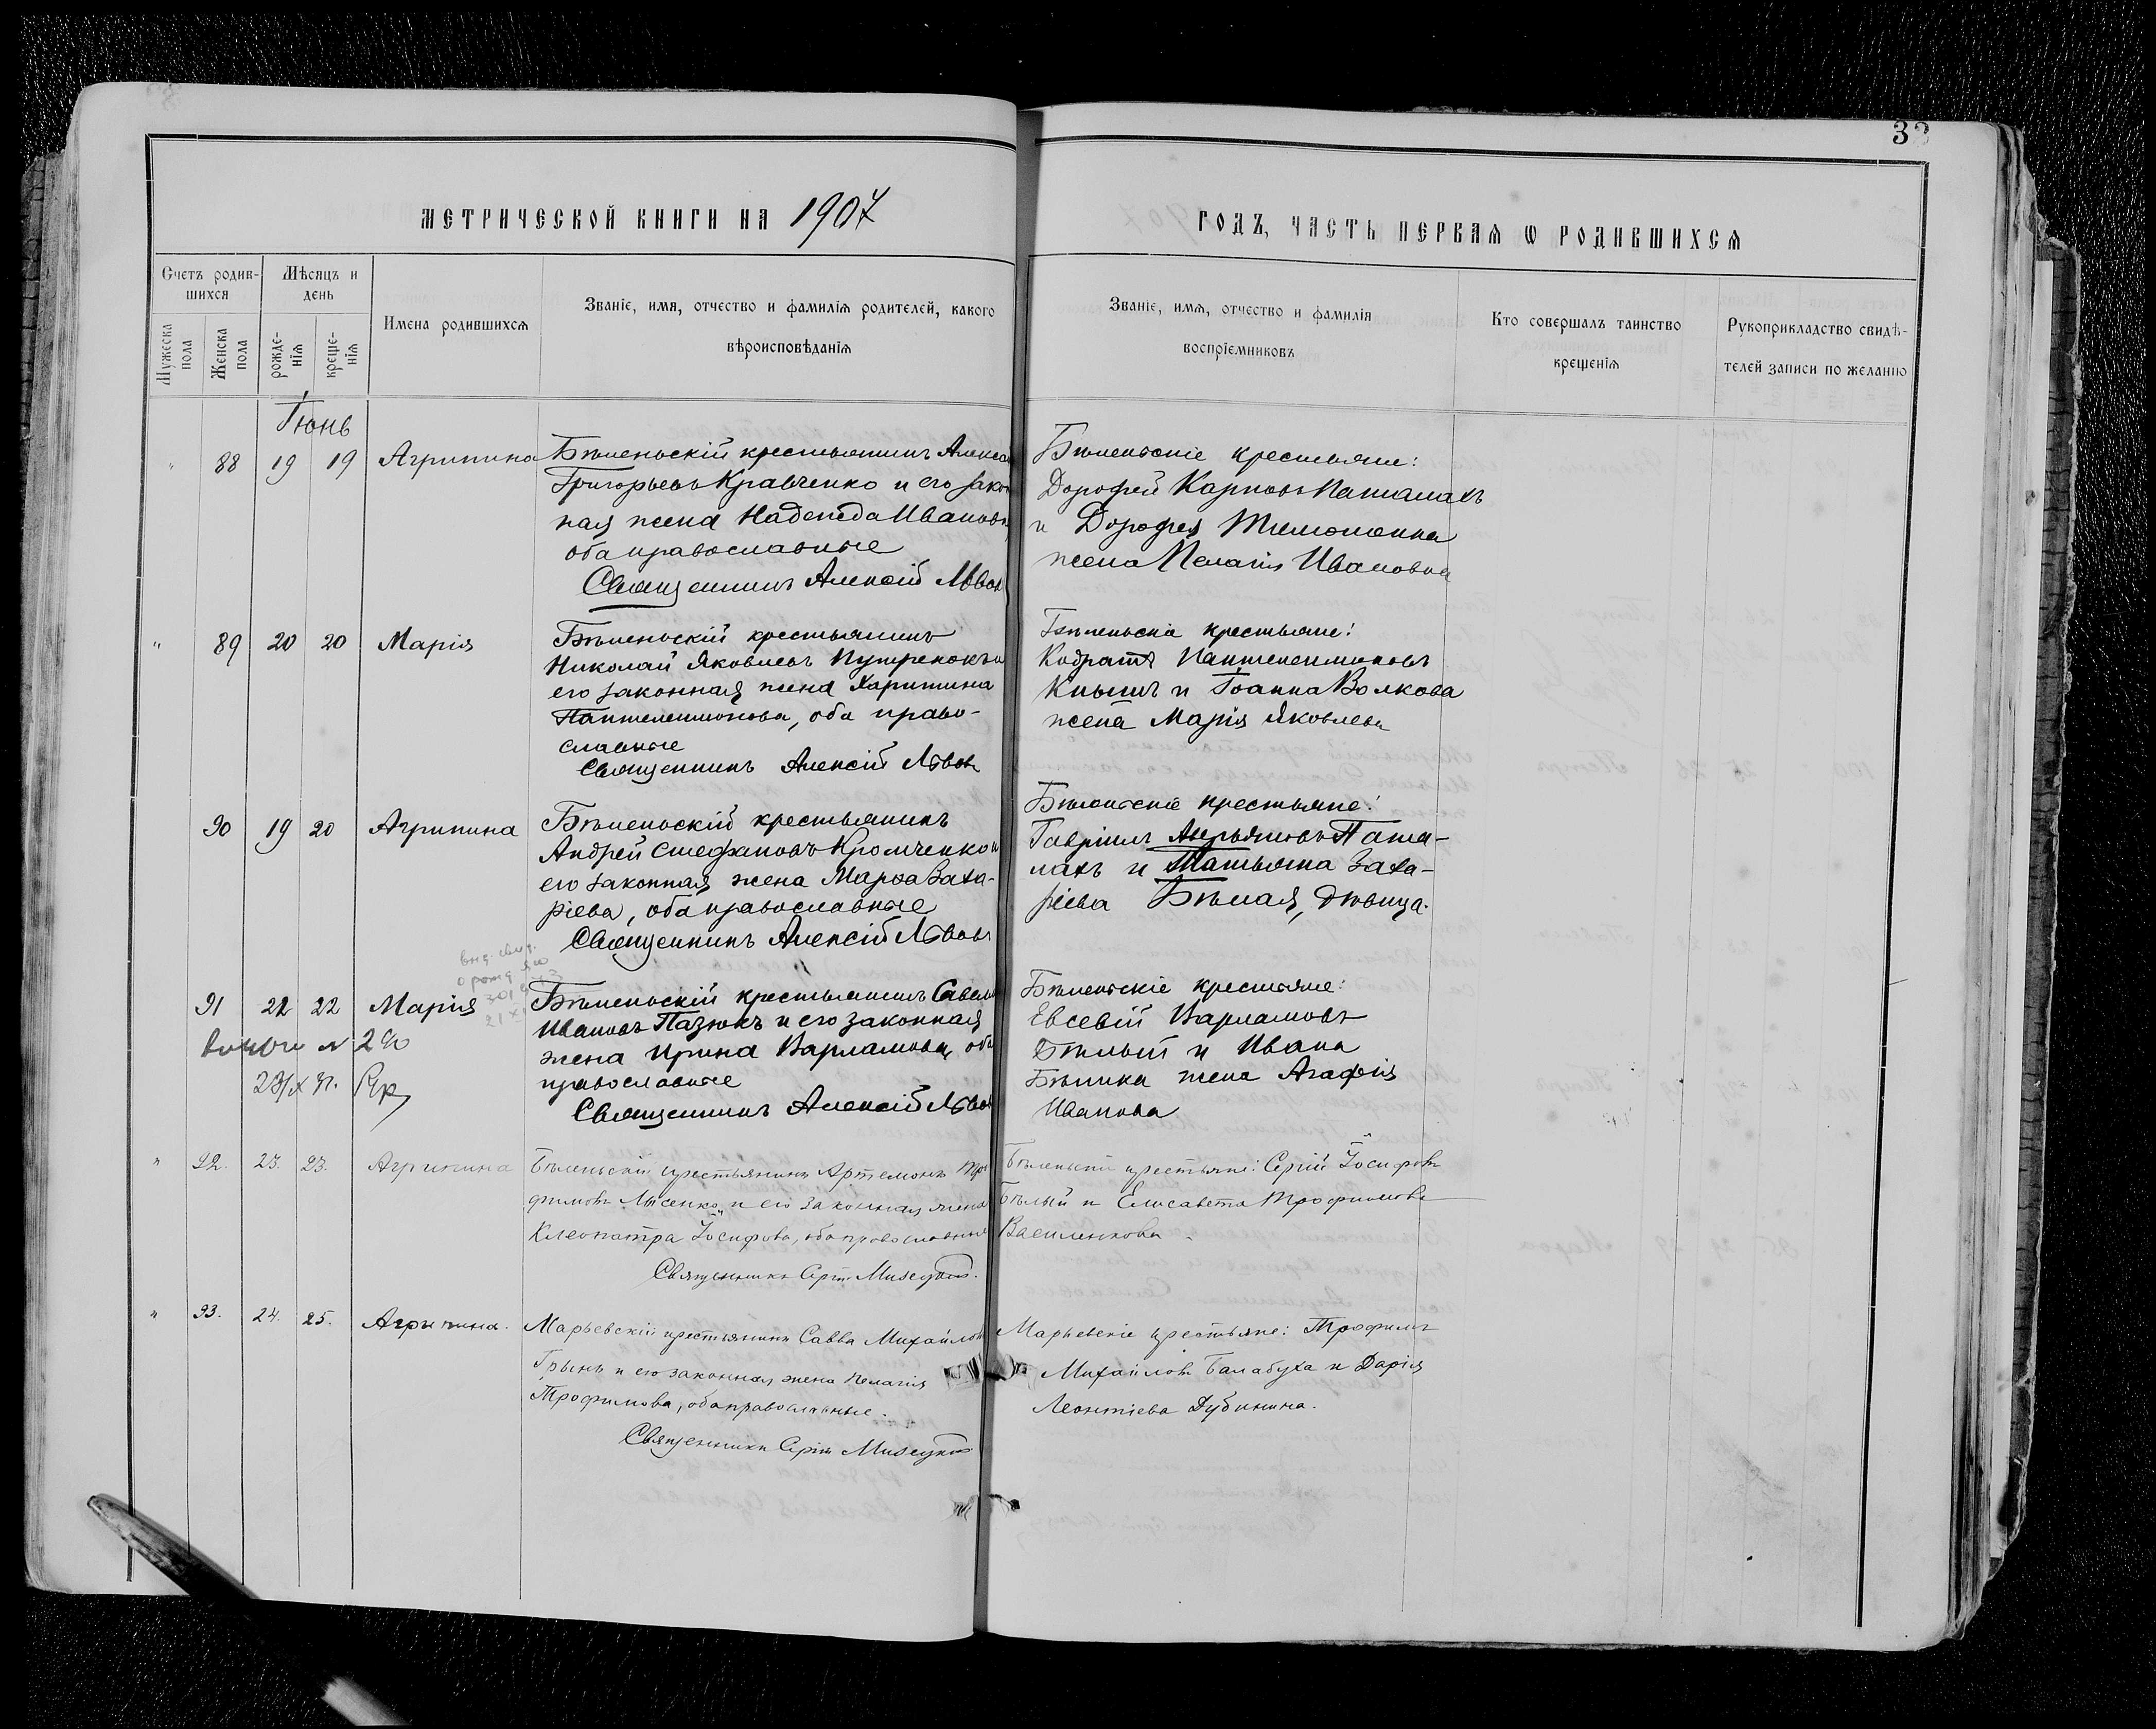 33
МЕТРИЧЕСКОЙ КНИГИ НА 1907
ГОДЪ, ЧАСТЬ ПЕРВАЯ Ѡ РОДИВШИХСЯ
Счетъ родив-
шихся
Мужеска пола
Женска пола
Мѣсяцъ и
день
рожде-
нія
креще-
нія
Имена родившихся
Званіе, имя, отчество и фамилія родителей, какого
вѣроисповѣданія
Званіе, имя, отчество и фамилія
воспріемниковъ
Кто совершалъ таинство
крещенія
Рукоприкладство свидѣ-
телей записи по желанію
Іюнь
" 88 19 19 Агрипина
Бѣленьскій крестьянинъ Алекса
Григорьевъ Кравченко и его закон
ная жена Надежда Иванов
оба православные
Священникъ Алексій Львовъ
Бѣленьскіе крестьяне:
Дорофей Карповъ Паталахъ
и Дорофея
жена Пелагія Ивановна
" 89 20 20 Марія
Бѣленьскій крестьянинъ
Николай Яковлевъ и
его законная жена Харитина
Пантелеимонова, оба право-
славные
Священникъ Алексій Львовъ
Бѣленьскіе крестьяне:
Кодратъ Пантелеимоновъ
Кнышъ и Іоанна Волкова
жена Марія Яковлева
90 19 20 Агрипина
Бѣленьскій крестьянинъ
Андрей Стефановъ Кромченко и
его законная жена Марѳа Заха-
ріева, оба православные
Священникъ Алексій Львовъ
Бѣленьскіе крестьяне:
Гавріилъ Андрьяновъ Пата-
лахъ и Татьяна Заха-
ріева Бѣлая, дѣвица.
91 22 22 Марія
Бѣленьскій крестьянинъ Савел
Ивановъ Пазюкъ и его законная
жена Ирина Варламова, оба
православные
Священникъ Алексій Львовъ
Бѣленьскіе крестьяне:
Евсевій Варламовъ
Бѣлый и Ивана
Бѣлика жена Агафія
Иванова
" 92. 23. 23. Агрипина
Бѣленьскій крестьянинъ Артемонъ Тро
фимовъ Лысенко и его законная жена
Клеопатра Іосифова, оба православные
Священникъ Сергій
Бѣленьскіе крестьяне: Сергій Іосифовъ
Бѣлый и Елисавета Трофимова
Василенкова
" 93. 24. 25. Агрипина.
Марьевскій крестьянинъ Савва Михайловъ
Грынь и его законная жена Пелагія
Трофимова, оба православные.
Священникъ Сергій
Марьевскіе крестьяне: Трофимъ
Михайловъ Балабуха и Дарія
Леонтіева Дубинина.